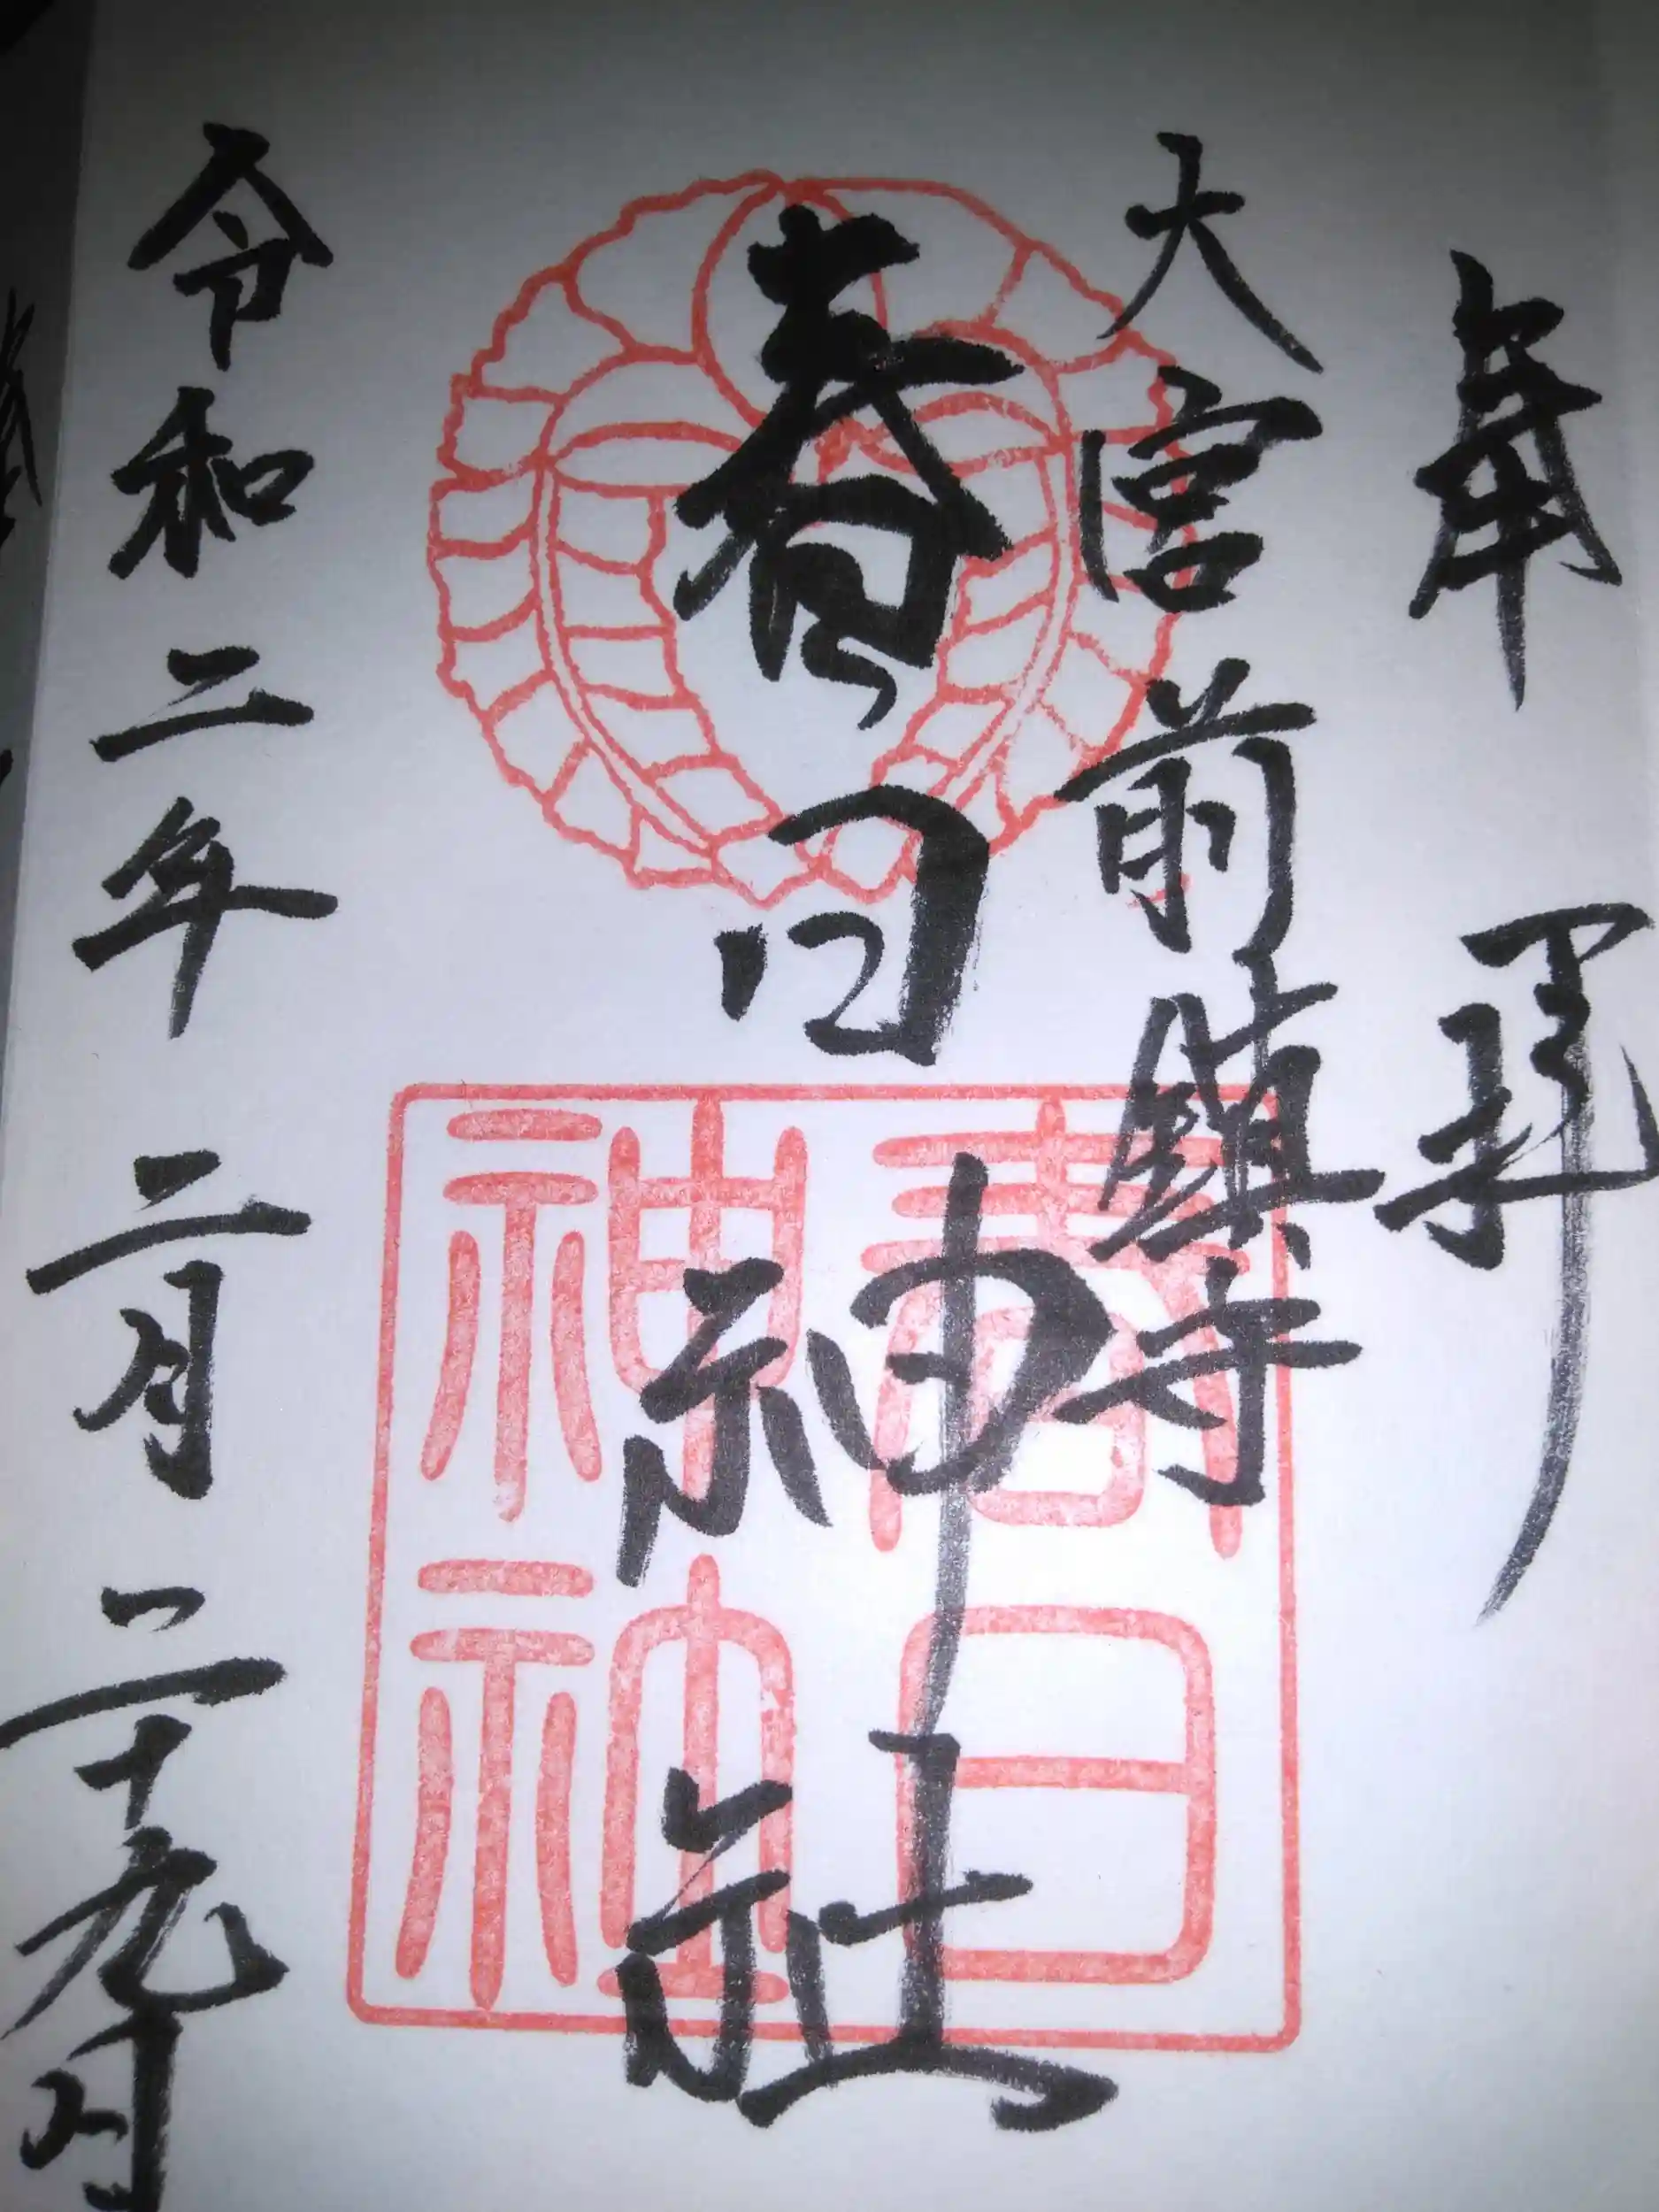 奉拝
大宮前鎮守
春日神社
春日
神社
令和二年二月二十九日